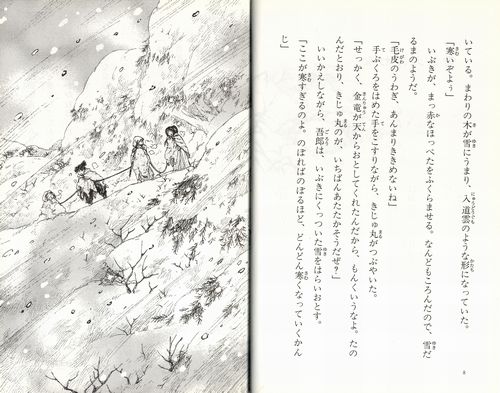 いている。まわりの木が雪にうまり、入道雲のような形になっていた。
「寒いぞよぅ」
いぶきが、まっ赤なほっぺたをふくらませる。なんどもころんだので、雪だ
るまのようだ。
「毛皮のうわぎ、あんまりききめないね」
手ぶくろをはめた手をこすりながら、きじゅ丸がつぶやいた。
「せっかく、金竜が天からおとしてくれたんだから、もんくいうなよ。たの
んだとおり、きじゅ丸のが、いちばんあたたかそうだぜ？」
いいかえしながら、吾郎は、いぶきにくっついた雪をはらいおとす。
「ここが寒すぎるのよ。のぼればのぼるほど、どんどん寒くなっていくかん
じ」
8